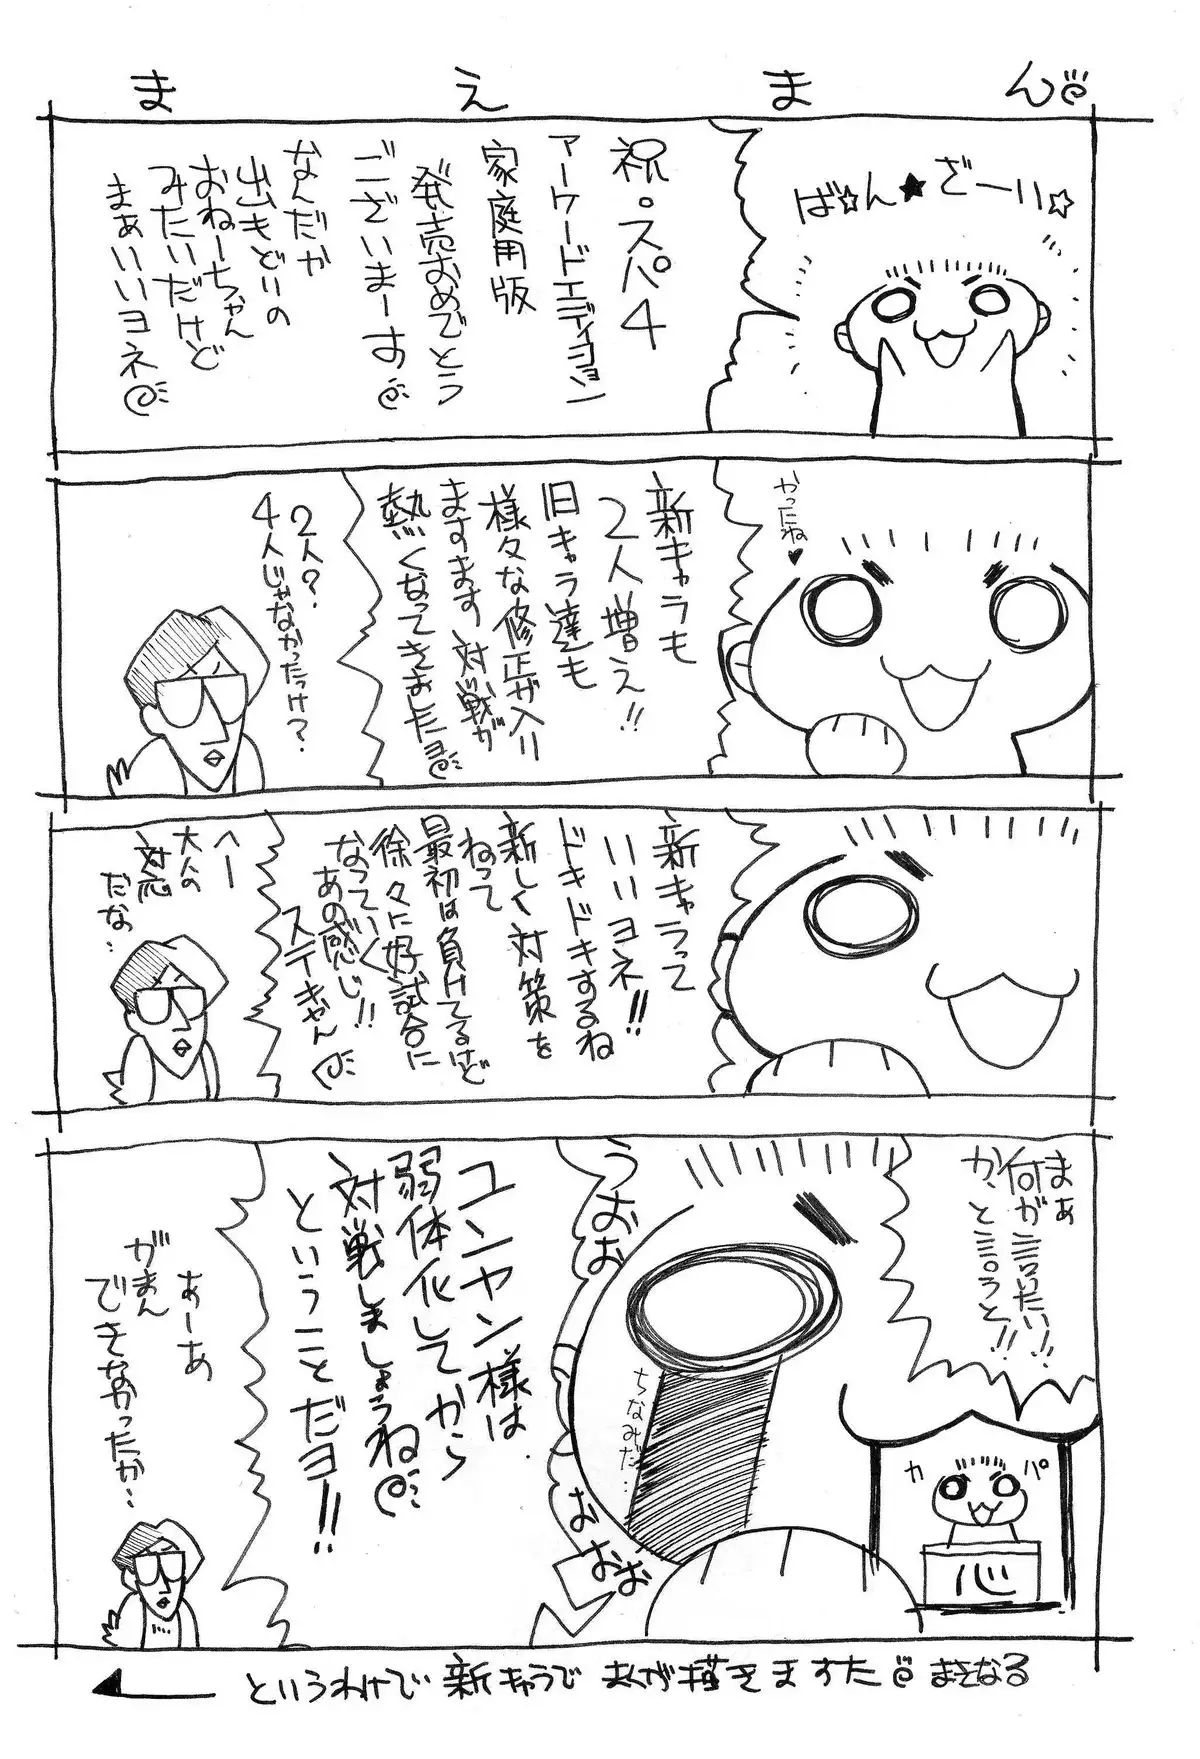 まえまん
ば☆ん★ざーい☆
祝・スパ4
アーケードエディション
家庭用版
発売おめでとう
ございまーす
なんだか
出もどりの
おねーちゃん
みたいだけど
まぁいいヨネ
かったね♥
新キャラも
2人増え!!
旧キャラ達も
様々な修正が入り
ますます対戦が
熱くなってきましたヨ
2人?
4人じゃなかったっけ?
新キャラって
いいヨネ!!
ドキドキするね
新しく対策を
ねって
最初は負けてるけど
徐々に好試合に
なっていく
あの感じ!!
ステキやん
へー
大人の
対応
だな…
まぁ
何が言いたい!!
か、と言うと!!
カパ
心
うおお
おおおお
ちなみだ…
ユンヤン様は
弱体化してから
対戦しましょうね
ということだヨ!!
あーあ
がまん
できなかったか…
というわけで新キャラでまんが描きますた まさなる